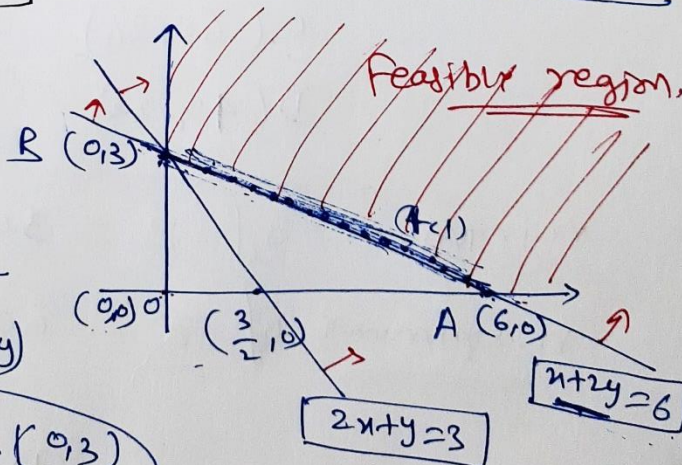 Feasible region.
B (0,3)
(4,1)
(0,0) O
(3/2, 0)
A (6,0)
y)
x+2y=6
2x+y=3
(0,3)